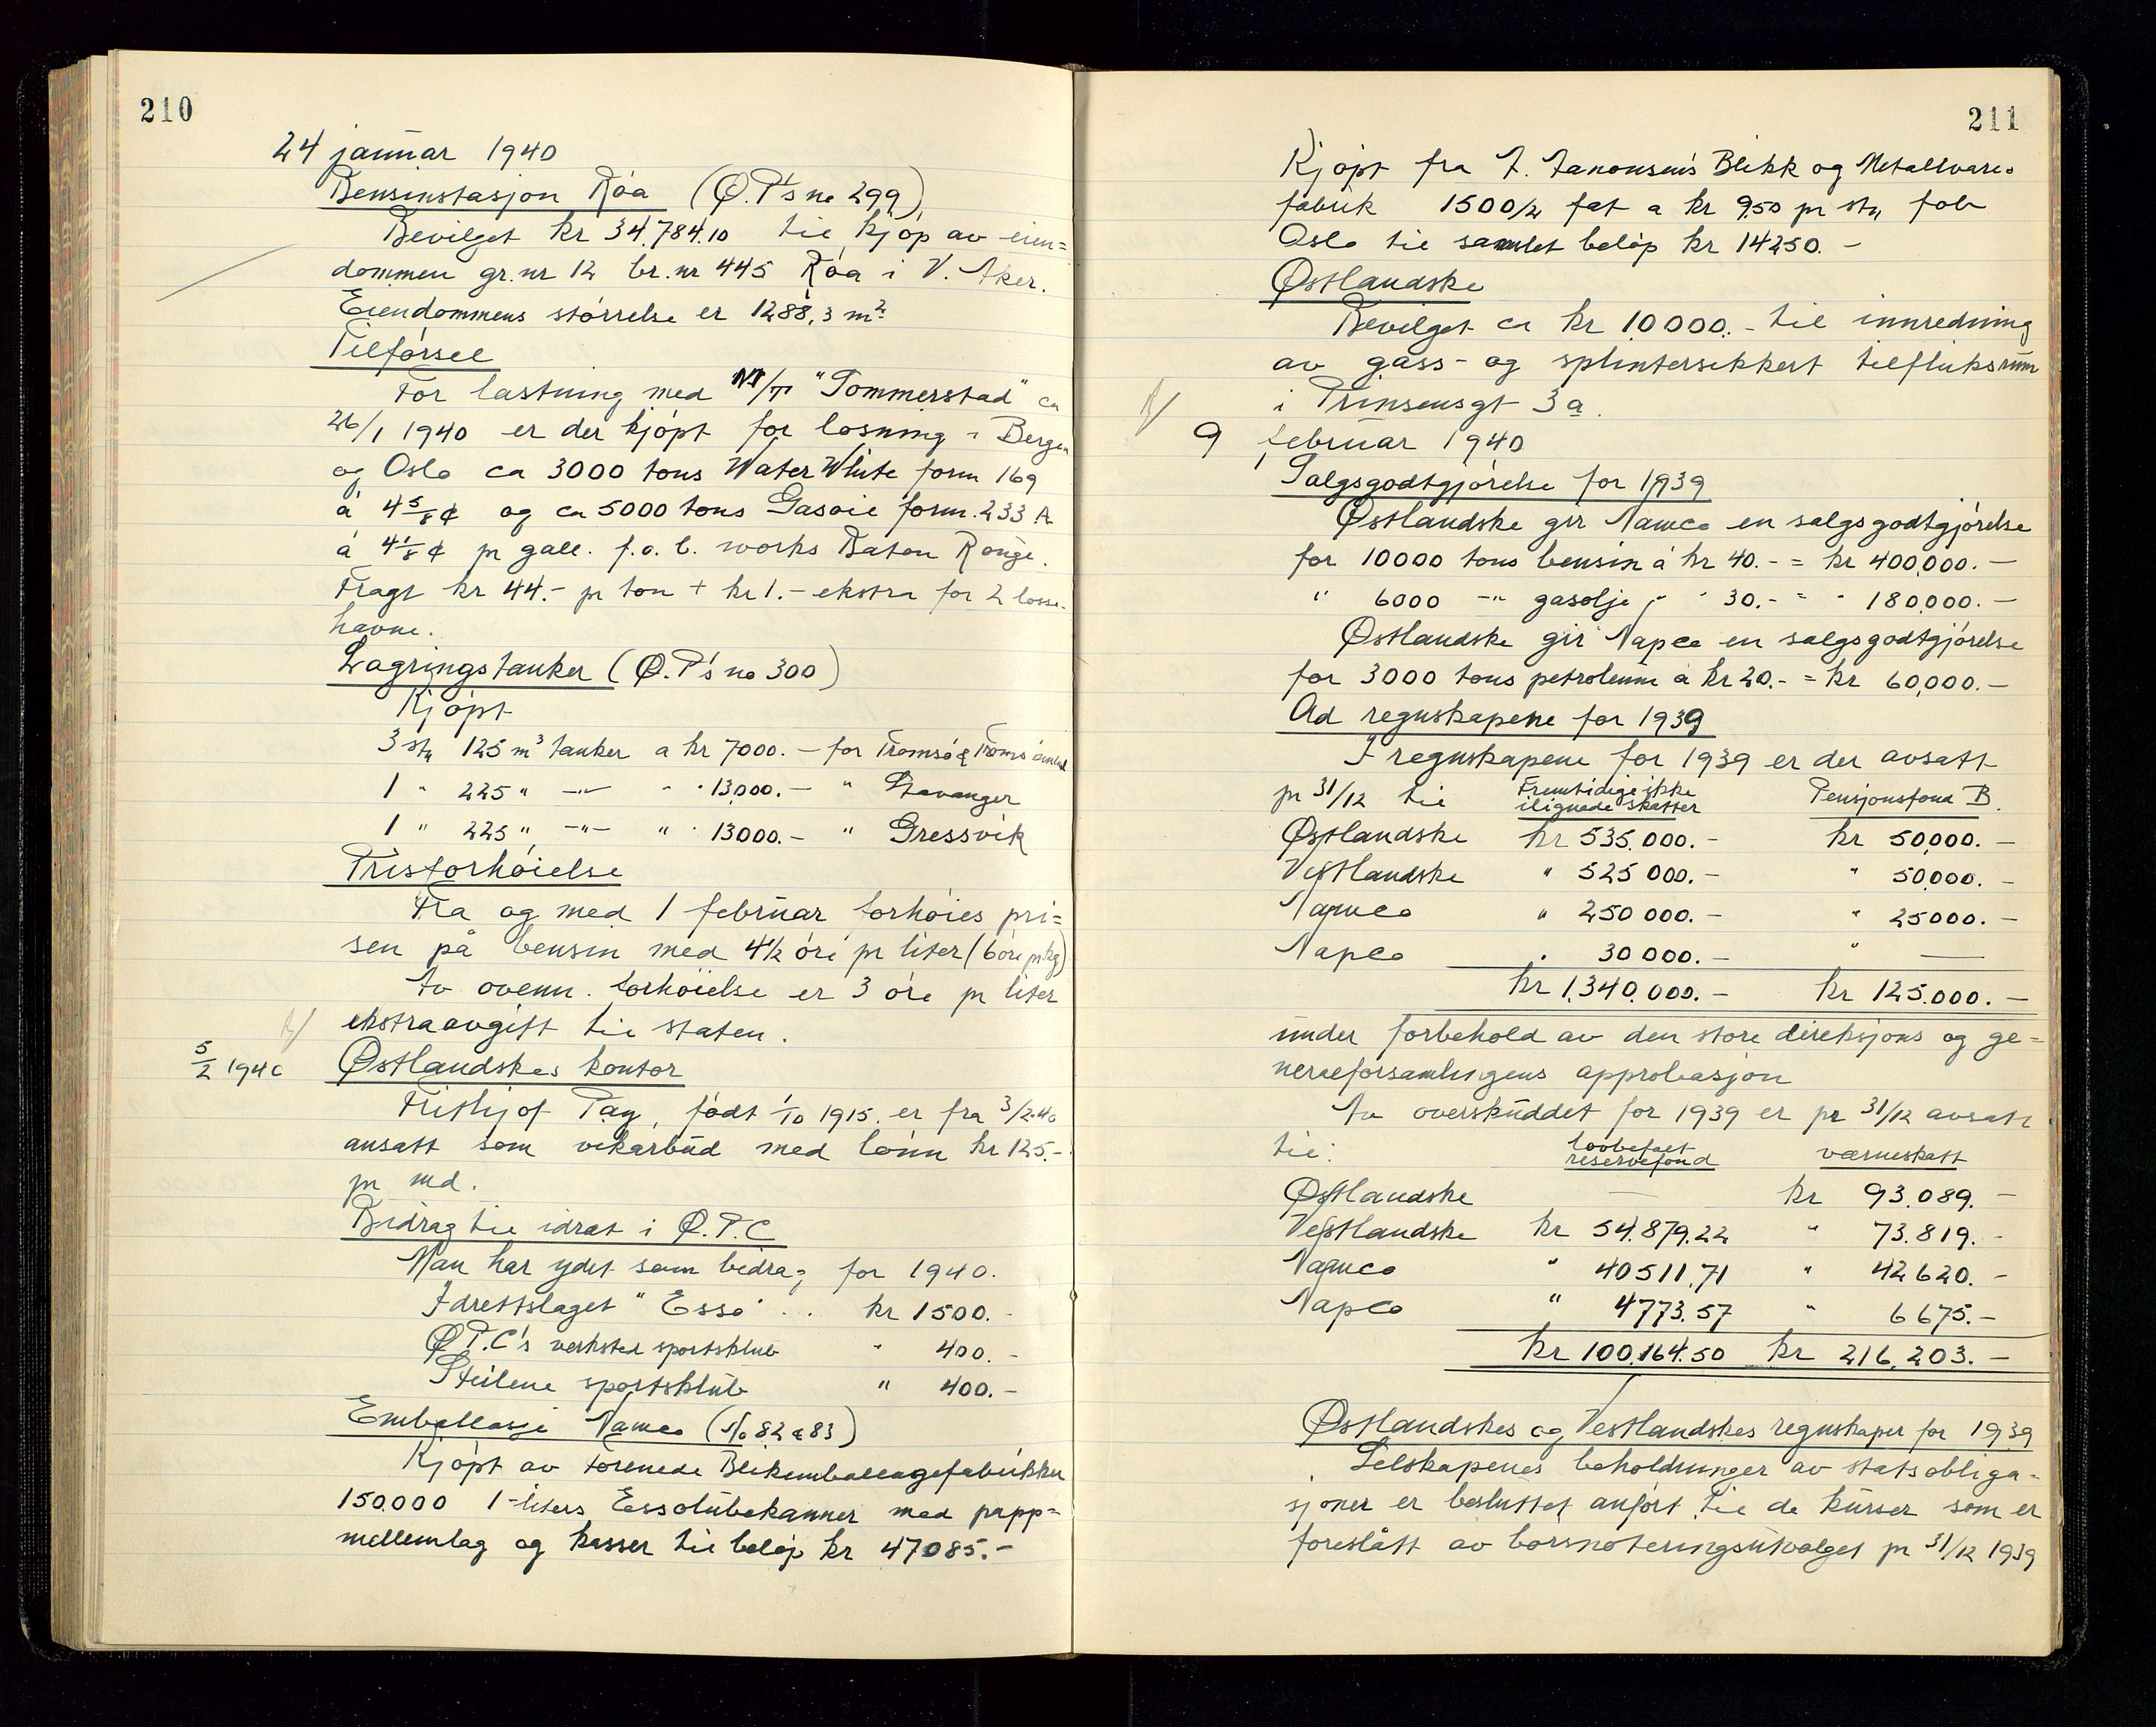 210
24 januar 1940
Bensinstasjon Røa (Ø.P's no 299)
Bevilget kr 34.784.10 til kjøp av eien=
dommen gr.nr 12 br.nr 445 Røa i V. Aker.
Eiendommens størrelse er 1288,3 m²
Tilførsel
For lastning med M/T "Sommerstad" ca
26/1 1940 er der kjøpt for losning i Bergen
og Oslo ca 3000 tons Water White form 169
à 4 5/8 ¢ og ca 5000 tons Gasoil form. 233 A
à 4 1/8 ¢ pr gall. f.o.b. works Baton Rouge.
Fragt kr 44.- pr ton + kr 1.- ekstra for 2 losse-
havne.
Lagringstanker (Ø.P's no 300)
Kjøpt
3 stk 125 m³ tanker a kr 7000.- for Tromsø & Troms
1 " 225 " -"- " " 13.000.- " Stavanger
1 " 225 " -"- " " 13000.- " Gressvik
Prisforhøielse
Fra og med 1 februar forhøies pri=
sen på bensin med 4½ øre pr liter (6 øre pr kg)
Av ovenn. forhøielse er 3 øre pr liter
ekstraavgift til staten.
5/2 1940 Østlandskes kontor
Frithjof Pay, født 1/10 1915, er fra 3/2.40
ansatt som vikarbud med lønn kr 125.-
pr md.
Bidrag til idræt i Ø.P.C
Man har ydet som bidrag for 1940.
Idrettslaget "Esso" .. kr 1500.-
Ø.P.C's verksted sportsklub " 400.-
Steilene sportsklub " 400.-
Emballasje Namco (No 82 & 83)
Kjøpt av Forenede Blikemballagefabrikker
150.000 1-liters Essolubekanner med papp=
mellemlag og kasser til beløp kr 47085.-
211
Kjøpt fra Blikk og Metallvare=
fabrik 1500/2 fat a kr 9.50 pr stk fob
Oslo til samlet beløp kr 14250.-
Østlandske
Bevilget ca kr 10000.- til innredning
av gass- og splintersikkert tilfluksrum
i Prinsensgt 3a.
9 februar 1940
Salgsgodtgjørelse for 1939
Østlandske gir Namco en salgsgodtgjørelse
for 10000 tons bensin à kr 40.- = kr 400,000.-
" 6000 -"- gasolje " " 30.- = " 180,000.-
Østlandske gir Napco en salgsgodtgjørelse
for 3000 tons petroleum a kr 20.- = kr 60,000.-
Ad regnskapene for 1939
I regnskapene for 1939 er der avsatt
pr 31/12 til Fremtidige ikke ilignede skatter Pensjonsfond B.
Østlandske kr 535.000.- kr 50,000.-
Vestlandske " 525 000.- " 50,000.-
Namco " 250 000.- " 25000.-
Napco " 30 000.- " —
kr 1.340.000.- kr 125.000.-
under forbehold av den store direksjons og ge=
neralforsamlingens approbasjon
Av overskuddet for 1939 er pr 31/12 avsatt
til: lovbefalt reservefond værneskatt
Østlandske — kr 93.089.-
Vestlandske kr 54.879.22 " 73.819.-
Namco " 40511,71 " 42620.-
Napco " 4773.57 " 6675.-
kr 100.164.50 kr 216,203.-
Østlandskes og Vestlandskes regnskaper for 1939
Selskapenes beholdninger av statsobliga-
sjoner er besluttet anført til de kurser som er
foreslått av børsnoteringsutvalget pr 31/12 1939